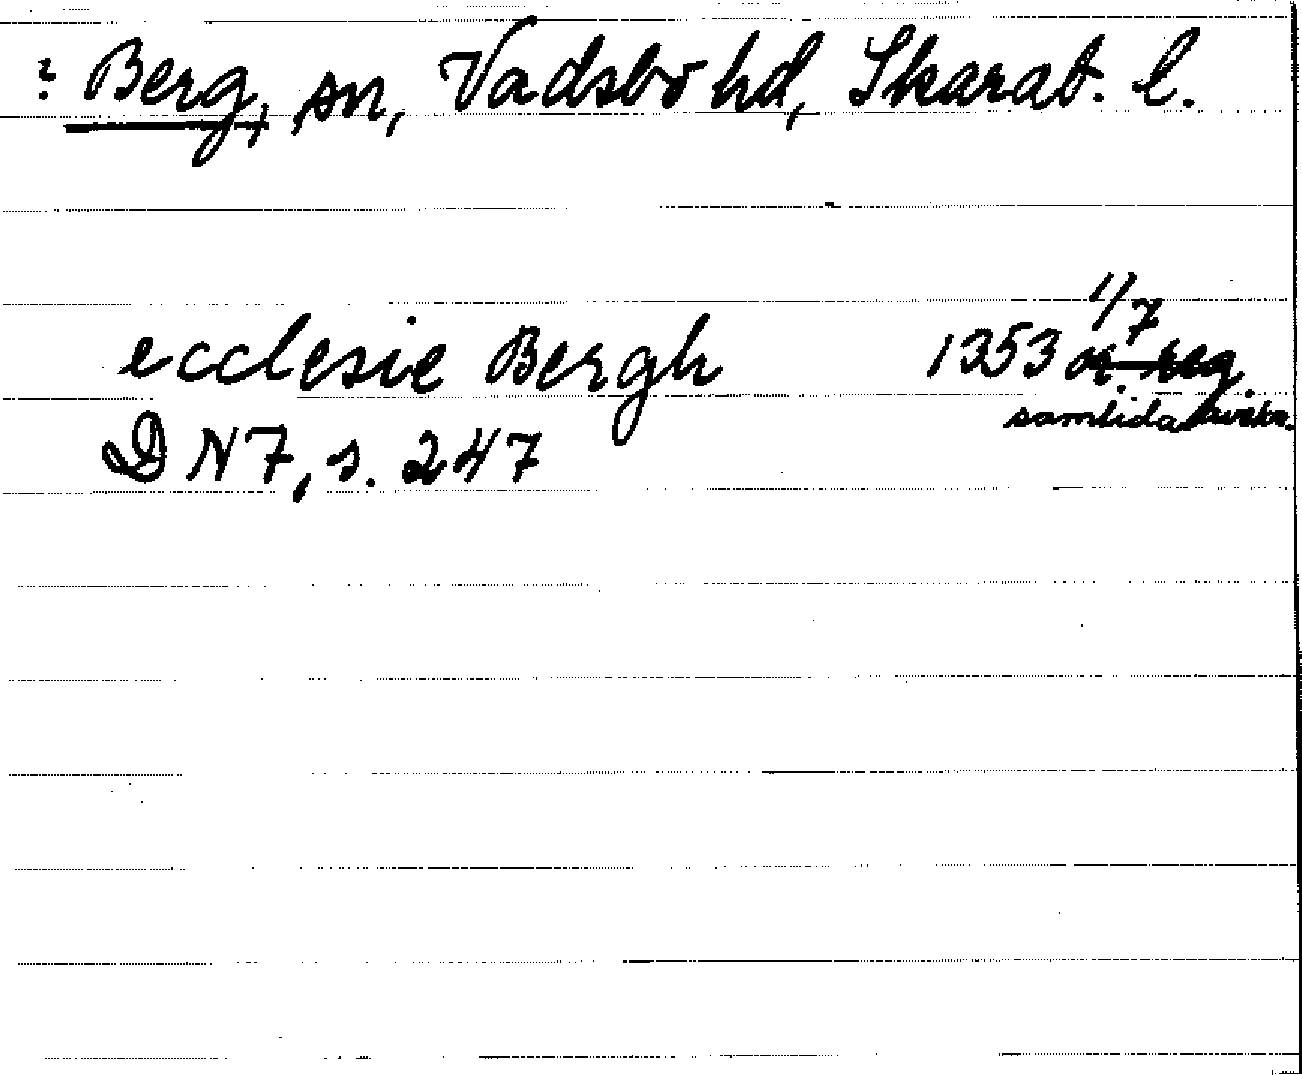 ? Berg, sn, Vadsbo hd, Skarab. l.
ecclesie Bergh 1353 1/7 or. reg.
samtida
DN 7, s. 247